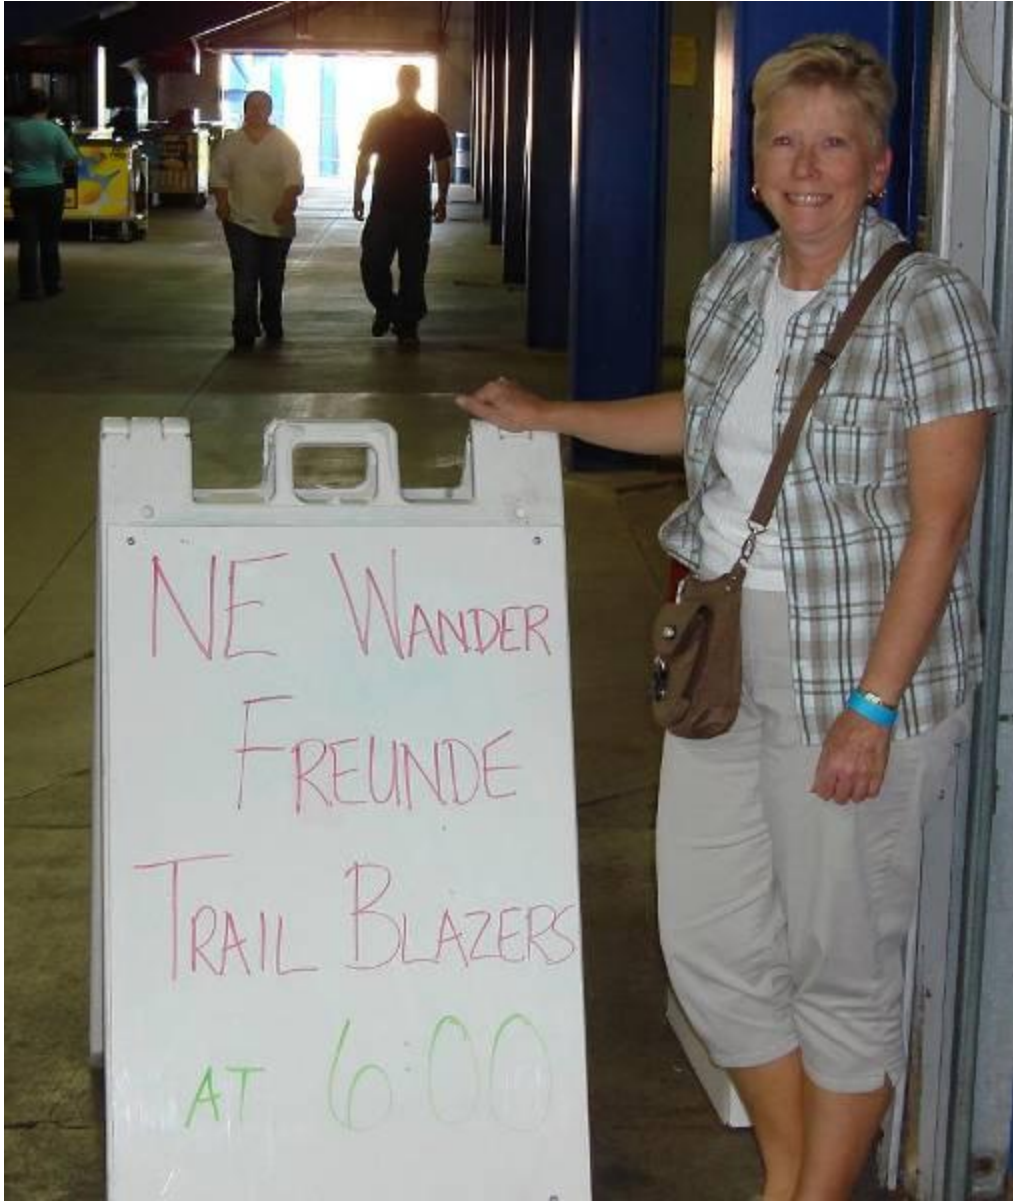 NE WANDER
FREUNDE
TRAIL BLAZERS
AT 6:00